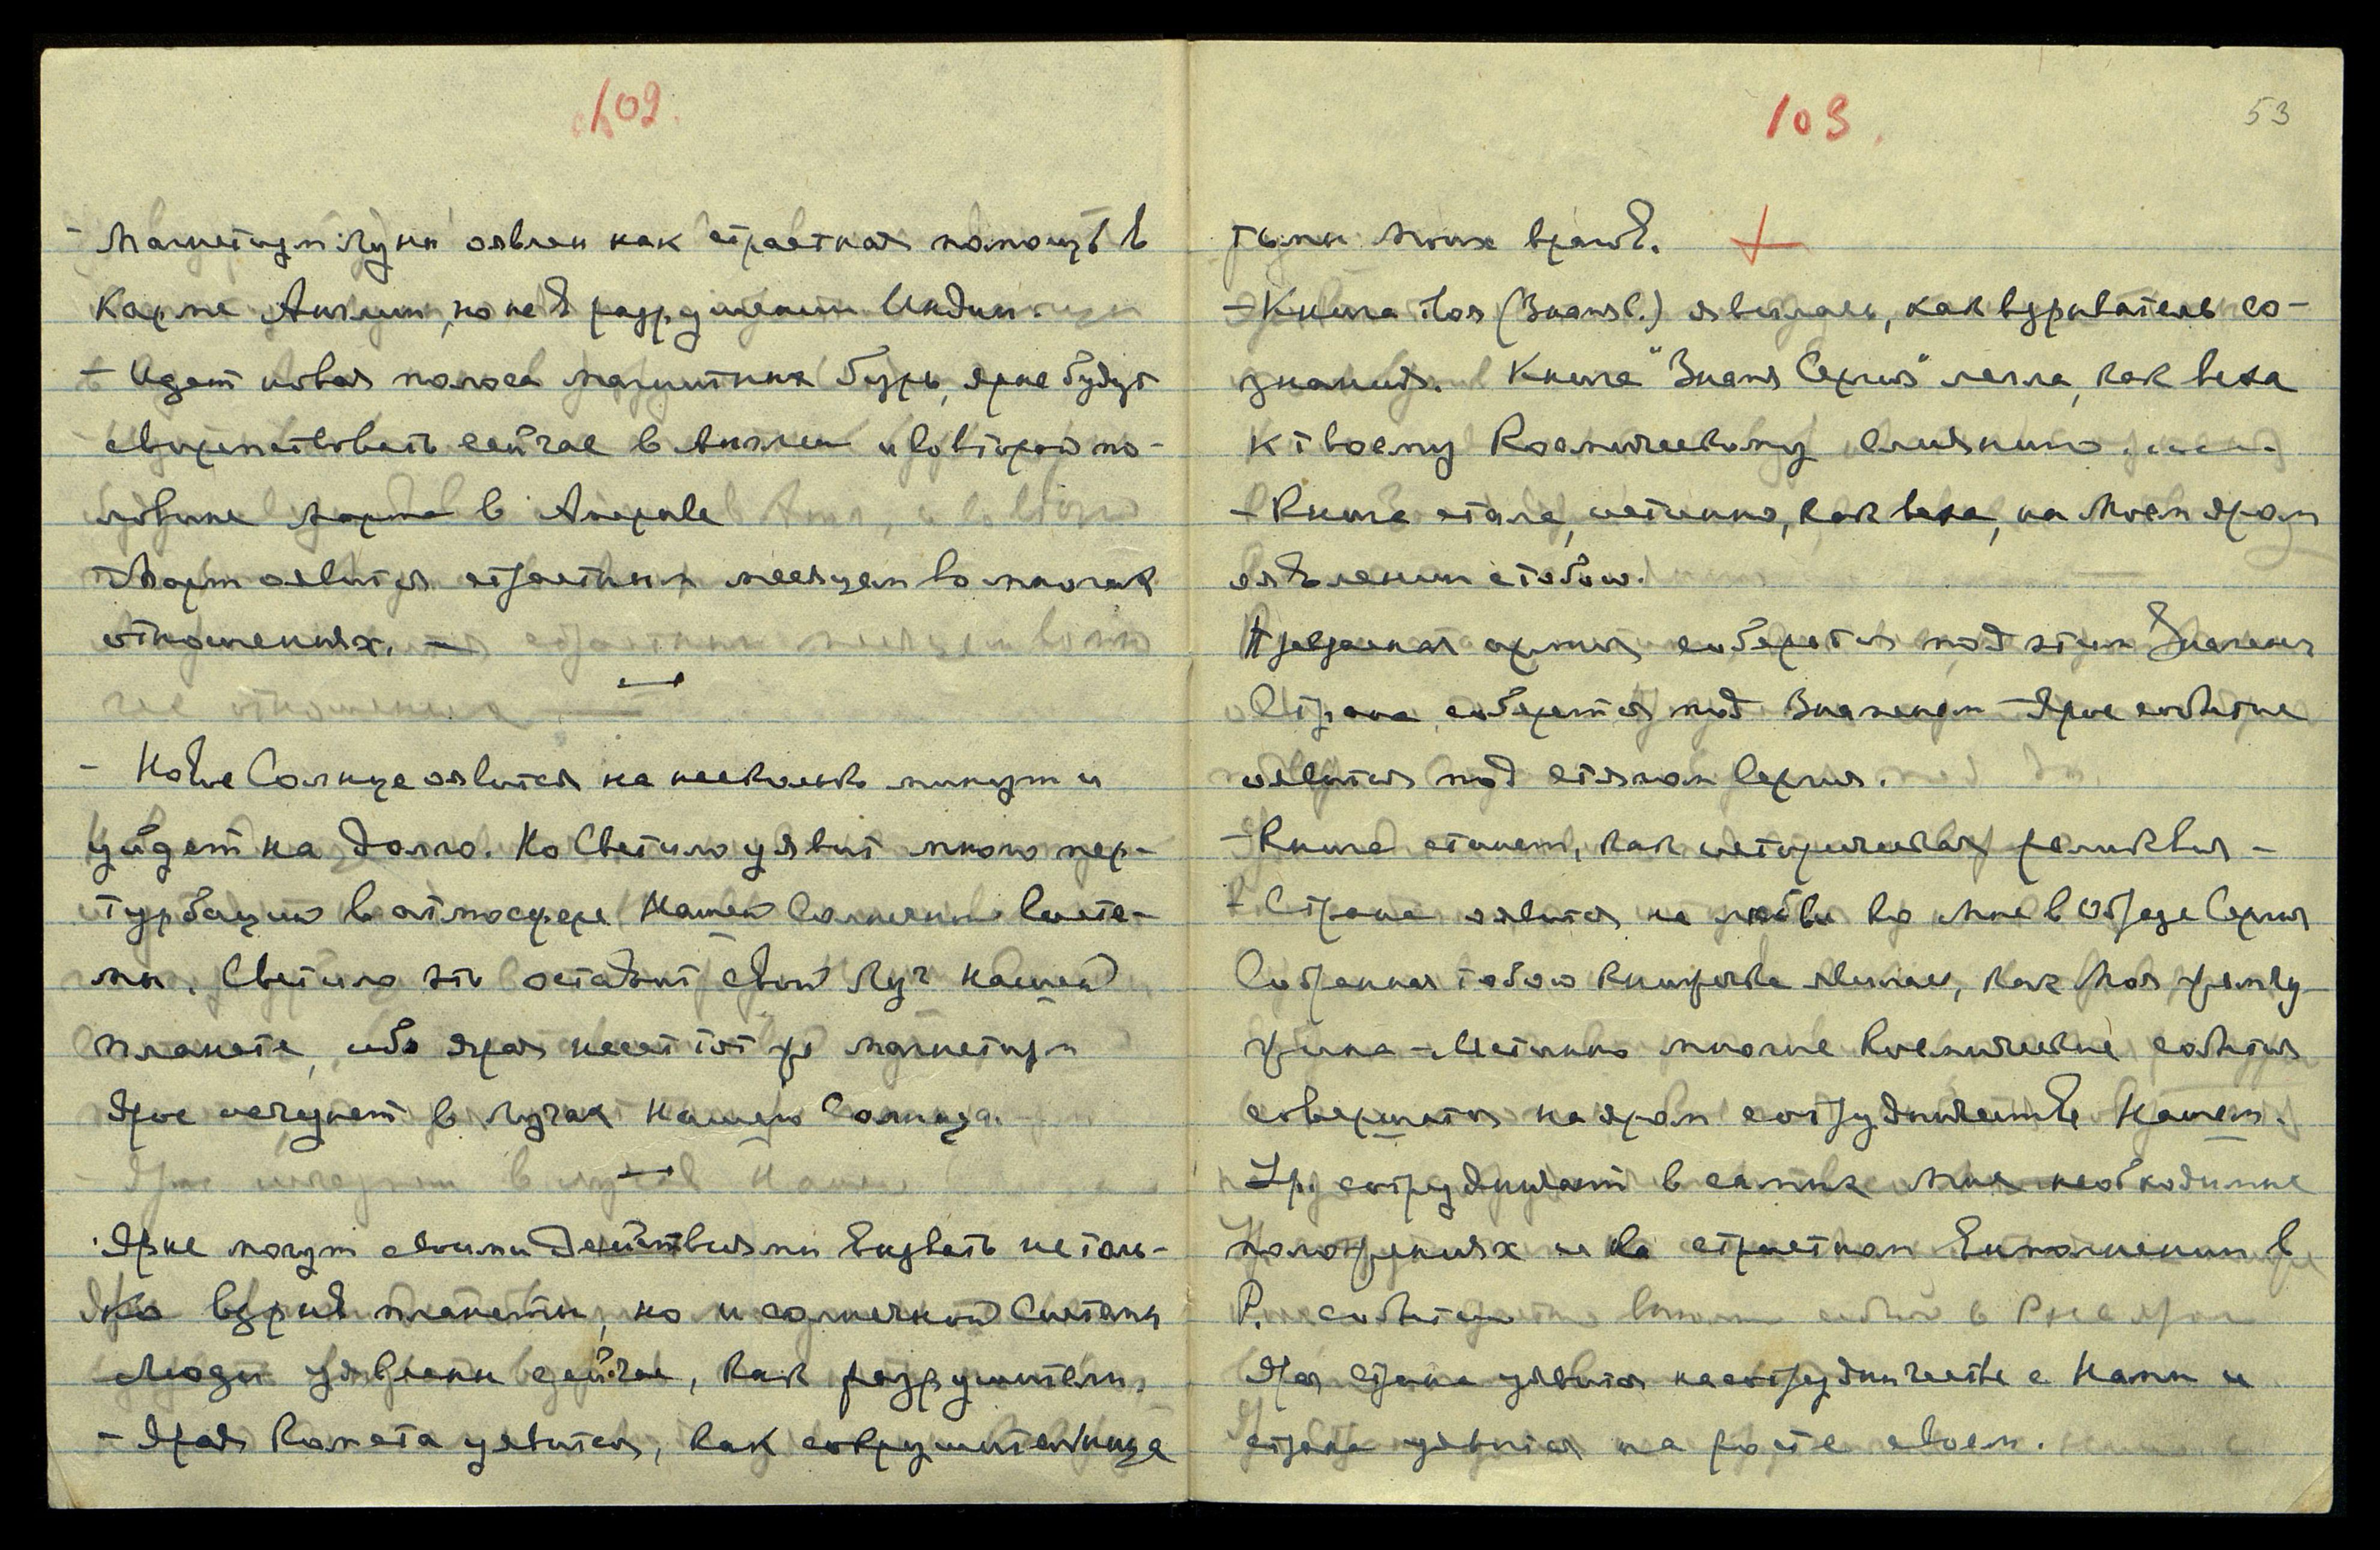 102.
- Магнетизм Луны оявлен как страстная помощь в
Карме Англии, но не в разрушении Индии.
- Идет новая полоса магнитных бурь, ярые будут
свирепствовать сейчас в Англии и во второй по-
ловине марта в Америке
- Март оявится страстным месяцем во многих
отношениях. -
- Новое Солнце оявится на несколько минут и
уйдет на долго. Но Светило уявит много пер-
турбации в атмосфере Нашей Солнечной Систе-
мы. Светило это оставит свой Луч нашей
планете, ибо ярая несет тот же магнетизм
Ярое исчезнет в лучах Нашего Солнца.
- Ярые могут своими действиями вызвать не толь-
ко взрыв планеты, но и солнечной Системы
Люди уявлены сейчас, как разрушители,
- Ярая Комета уявится, как сокрушительница
103.
53
тьмы Моих врагов.
- Книга твоя (Знамя С.) явилась, как взрыватель со-
знания. Книга "Знамя Сергия" легла, как веха
к твоему Космическому слиянию.
- Книга стала, истинно, как веха, на Моем яром
оявлении с тобою.
Прекрасная армия соберется под этим Знаменем
Страна соберется под Знаменем - Ярое событие
оявится под стягом Сергия.
- Книга станет, как историческая реликвия -
- Страна оявится на любви ко Мне в Образе Сергия
Собранная тобою книжечка явилась, как Моя жемчу-
жина - Истинно многие Космические события
совершатся на яром сотрудничестве Нашем.
Ур. сотрудничает в самых Мне необходимых
положениях и на страстном Выполнении в
Р. событии
Яра страна уявится на сотрудничестве с Нами и
страна уявится на росте своем.